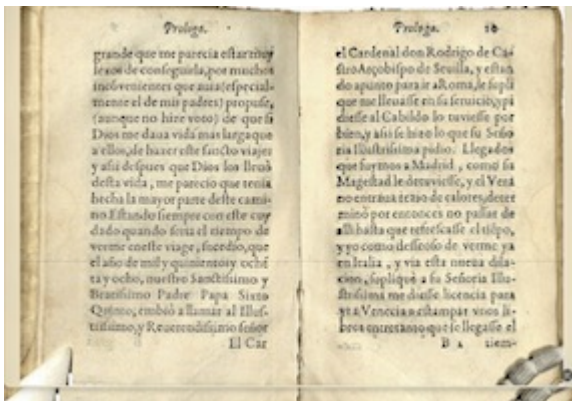 Prologo.
grande que me parecia estar muy
lexos de conseguirla, por muchos
inconvenientes que auia (especial-
mente el de mis padres) propuse,
(aunque no hize voto) de que si
Dios me daua vida mas larga que
a ellos, de hazer este sancto viaje:
y assi despues que Dios los lleuò
desta vida, me parecio que tenia
hecha la mayor parte deste cami-
no. Estando siempre con este cuy
dado quando seria el tiempo de
verme en este viage, sucedio, que
el año de mil y quinientos y ochē
ta y ocho, nuestro Sanctissimo y
Beatissimo Padre Papa Sixto
Quinto, embiò a llamar al Illus-
trissimo, y Reuerendissimo señor
El Car
Prologo. 10
el Cardenal don Rodrigo de Ca-
stro Arçobispo de Seuilla, y estan
do apunto para ir a Roma, le supli
que me lleuasse en su seruicio, y pi
diesse al Cabildo lo tuuiesse por
bien, y assi se hizo lo que su Seño
ria Illustrissima pidio. Llegados
que fuymos a Madrid, como su
Magestad le detuuiesse, y el Vera
no entraua tezio de calores, deter
minò por entonces no passar de
alli hasta que refrescasse el tiēpo,
y yo como desseoso de verme ya
en Italia, y via esta nueua dila-
cion, supliquè a su Señoria Illu-
strissima me diesse licencia para
yr a Venecia a estampar vnos li-
bros entretanto que se llegasse el
B 2 tiem-